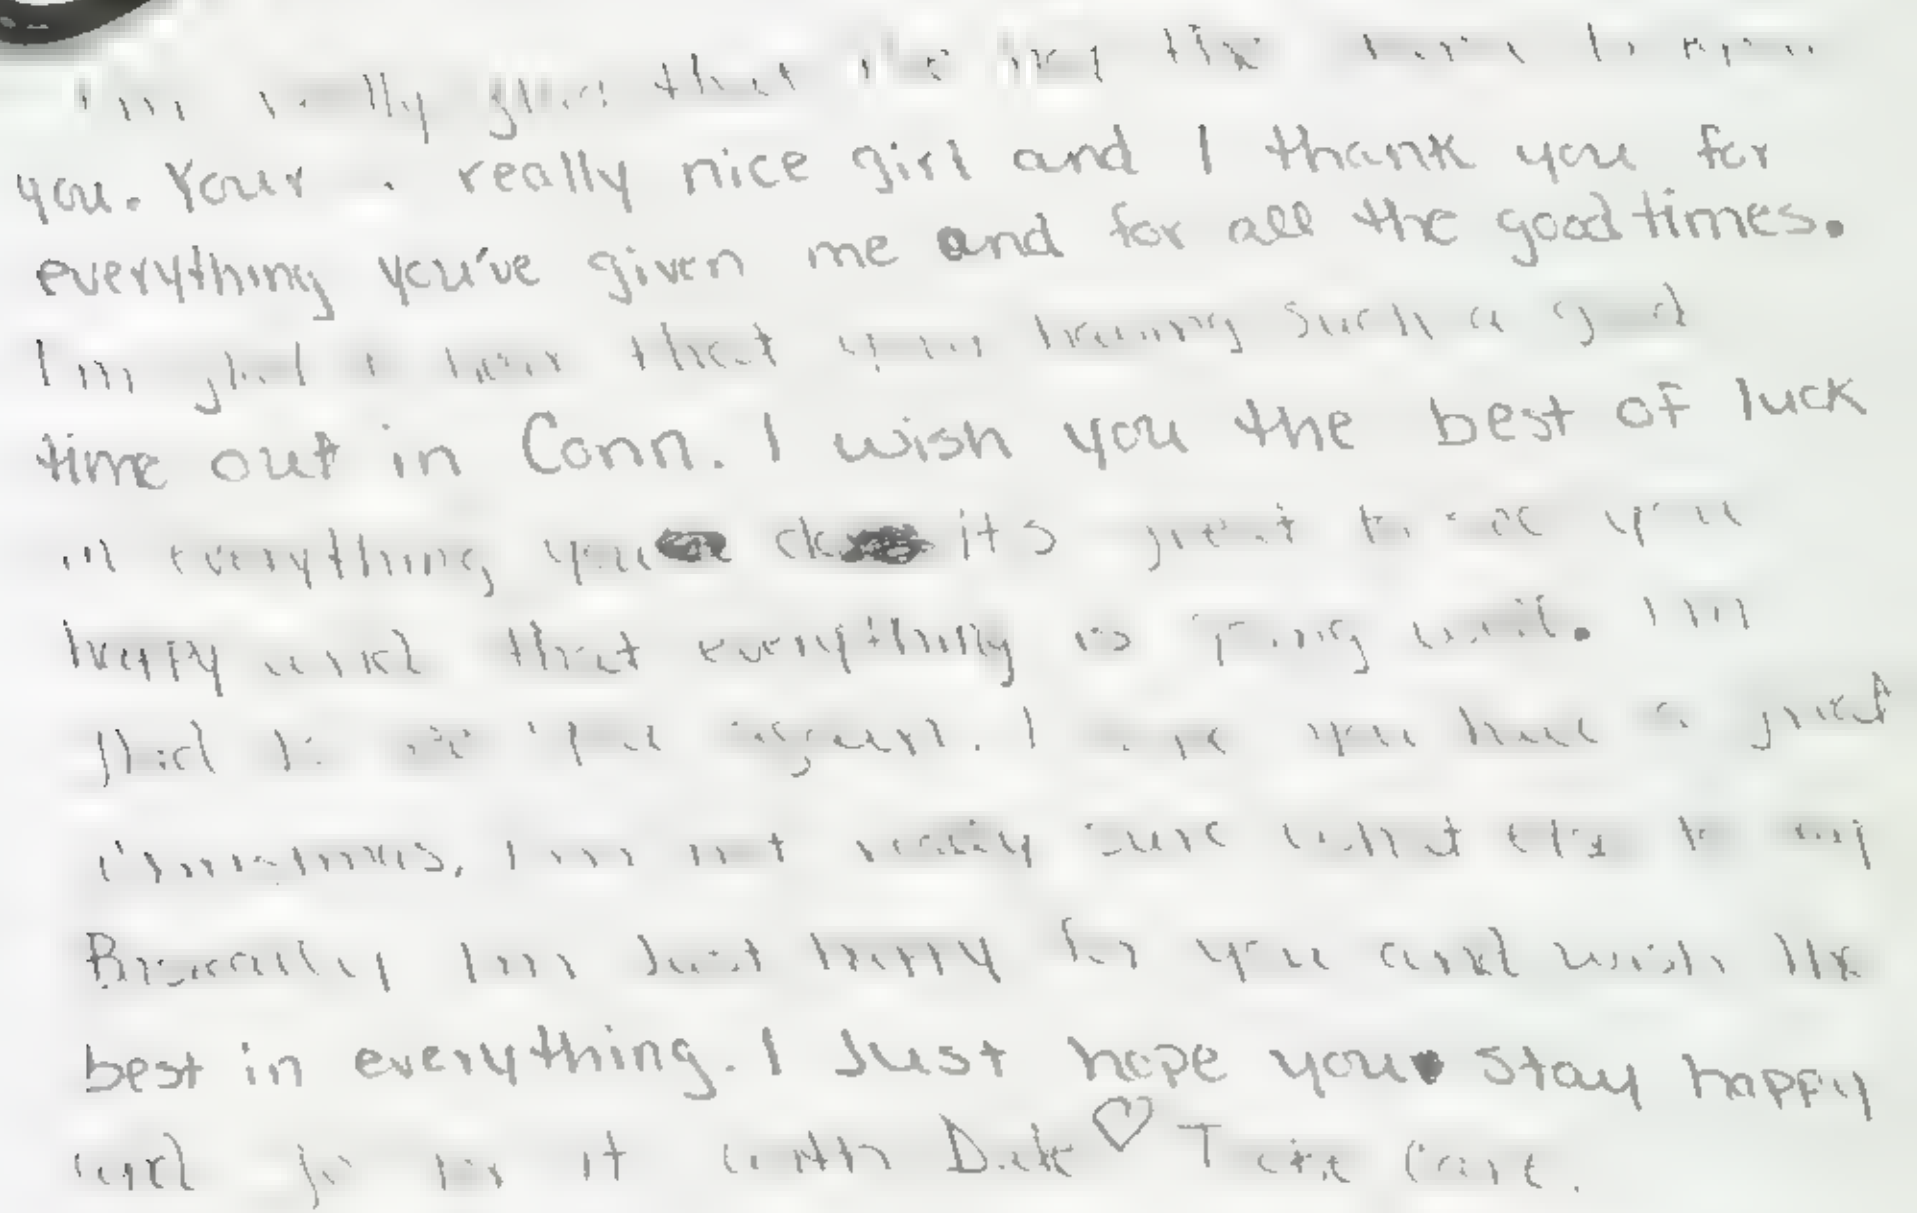 I'm really glad that
you. Your really nice girl and I thank you for
everything you've given me and for all the good times.
I'm glad that your having such a good
time out in Conn. I wish you the best of luck
in everything you its great to see you
happy and that everything is going well. I'm
glad to see you again. I hope you have a great
Christmas. I'm not really sure what else to say
Basically I'm Just happy for you and wish the
best in everything. I Just hope you stay happy
and go for it with ♡ Take Care.